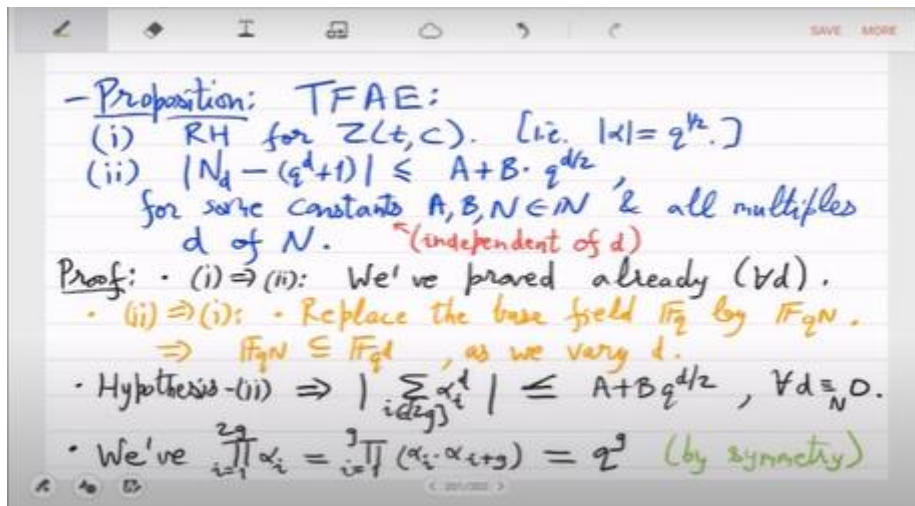 SAVE MORE
- Proposition: TFAE:
(i) RH for Z(t,C). [i.e. |α| = q^{1/2}.]
(ii) |N_d - (q^d+1)| ≤ A+B·q^{d/2},
for some constants A,B,N∈ℕ & all multiples
d of N. (independent of d)
Proof: · (i)⇒(ii): We've proved already (∀d).
· (ii)⇒(i): · Replace the base field 𝔽_q by 𝔽_{q^N}.
⇒ 𝔽_{q^N} ⊆ 𝔽_{q^d}, as we vary d.
· Hypothesis-(ii) ⇒ |∑_{i∈[2g]} α_i^d| ≤ A+Bq^{d/2}, ∀d≡_N 0.
· We've ∏_{i=1}^{2g} α_i = ∏_{i=1}^{g} (α_i·α_{i+g}) = q^g (by symmetry)